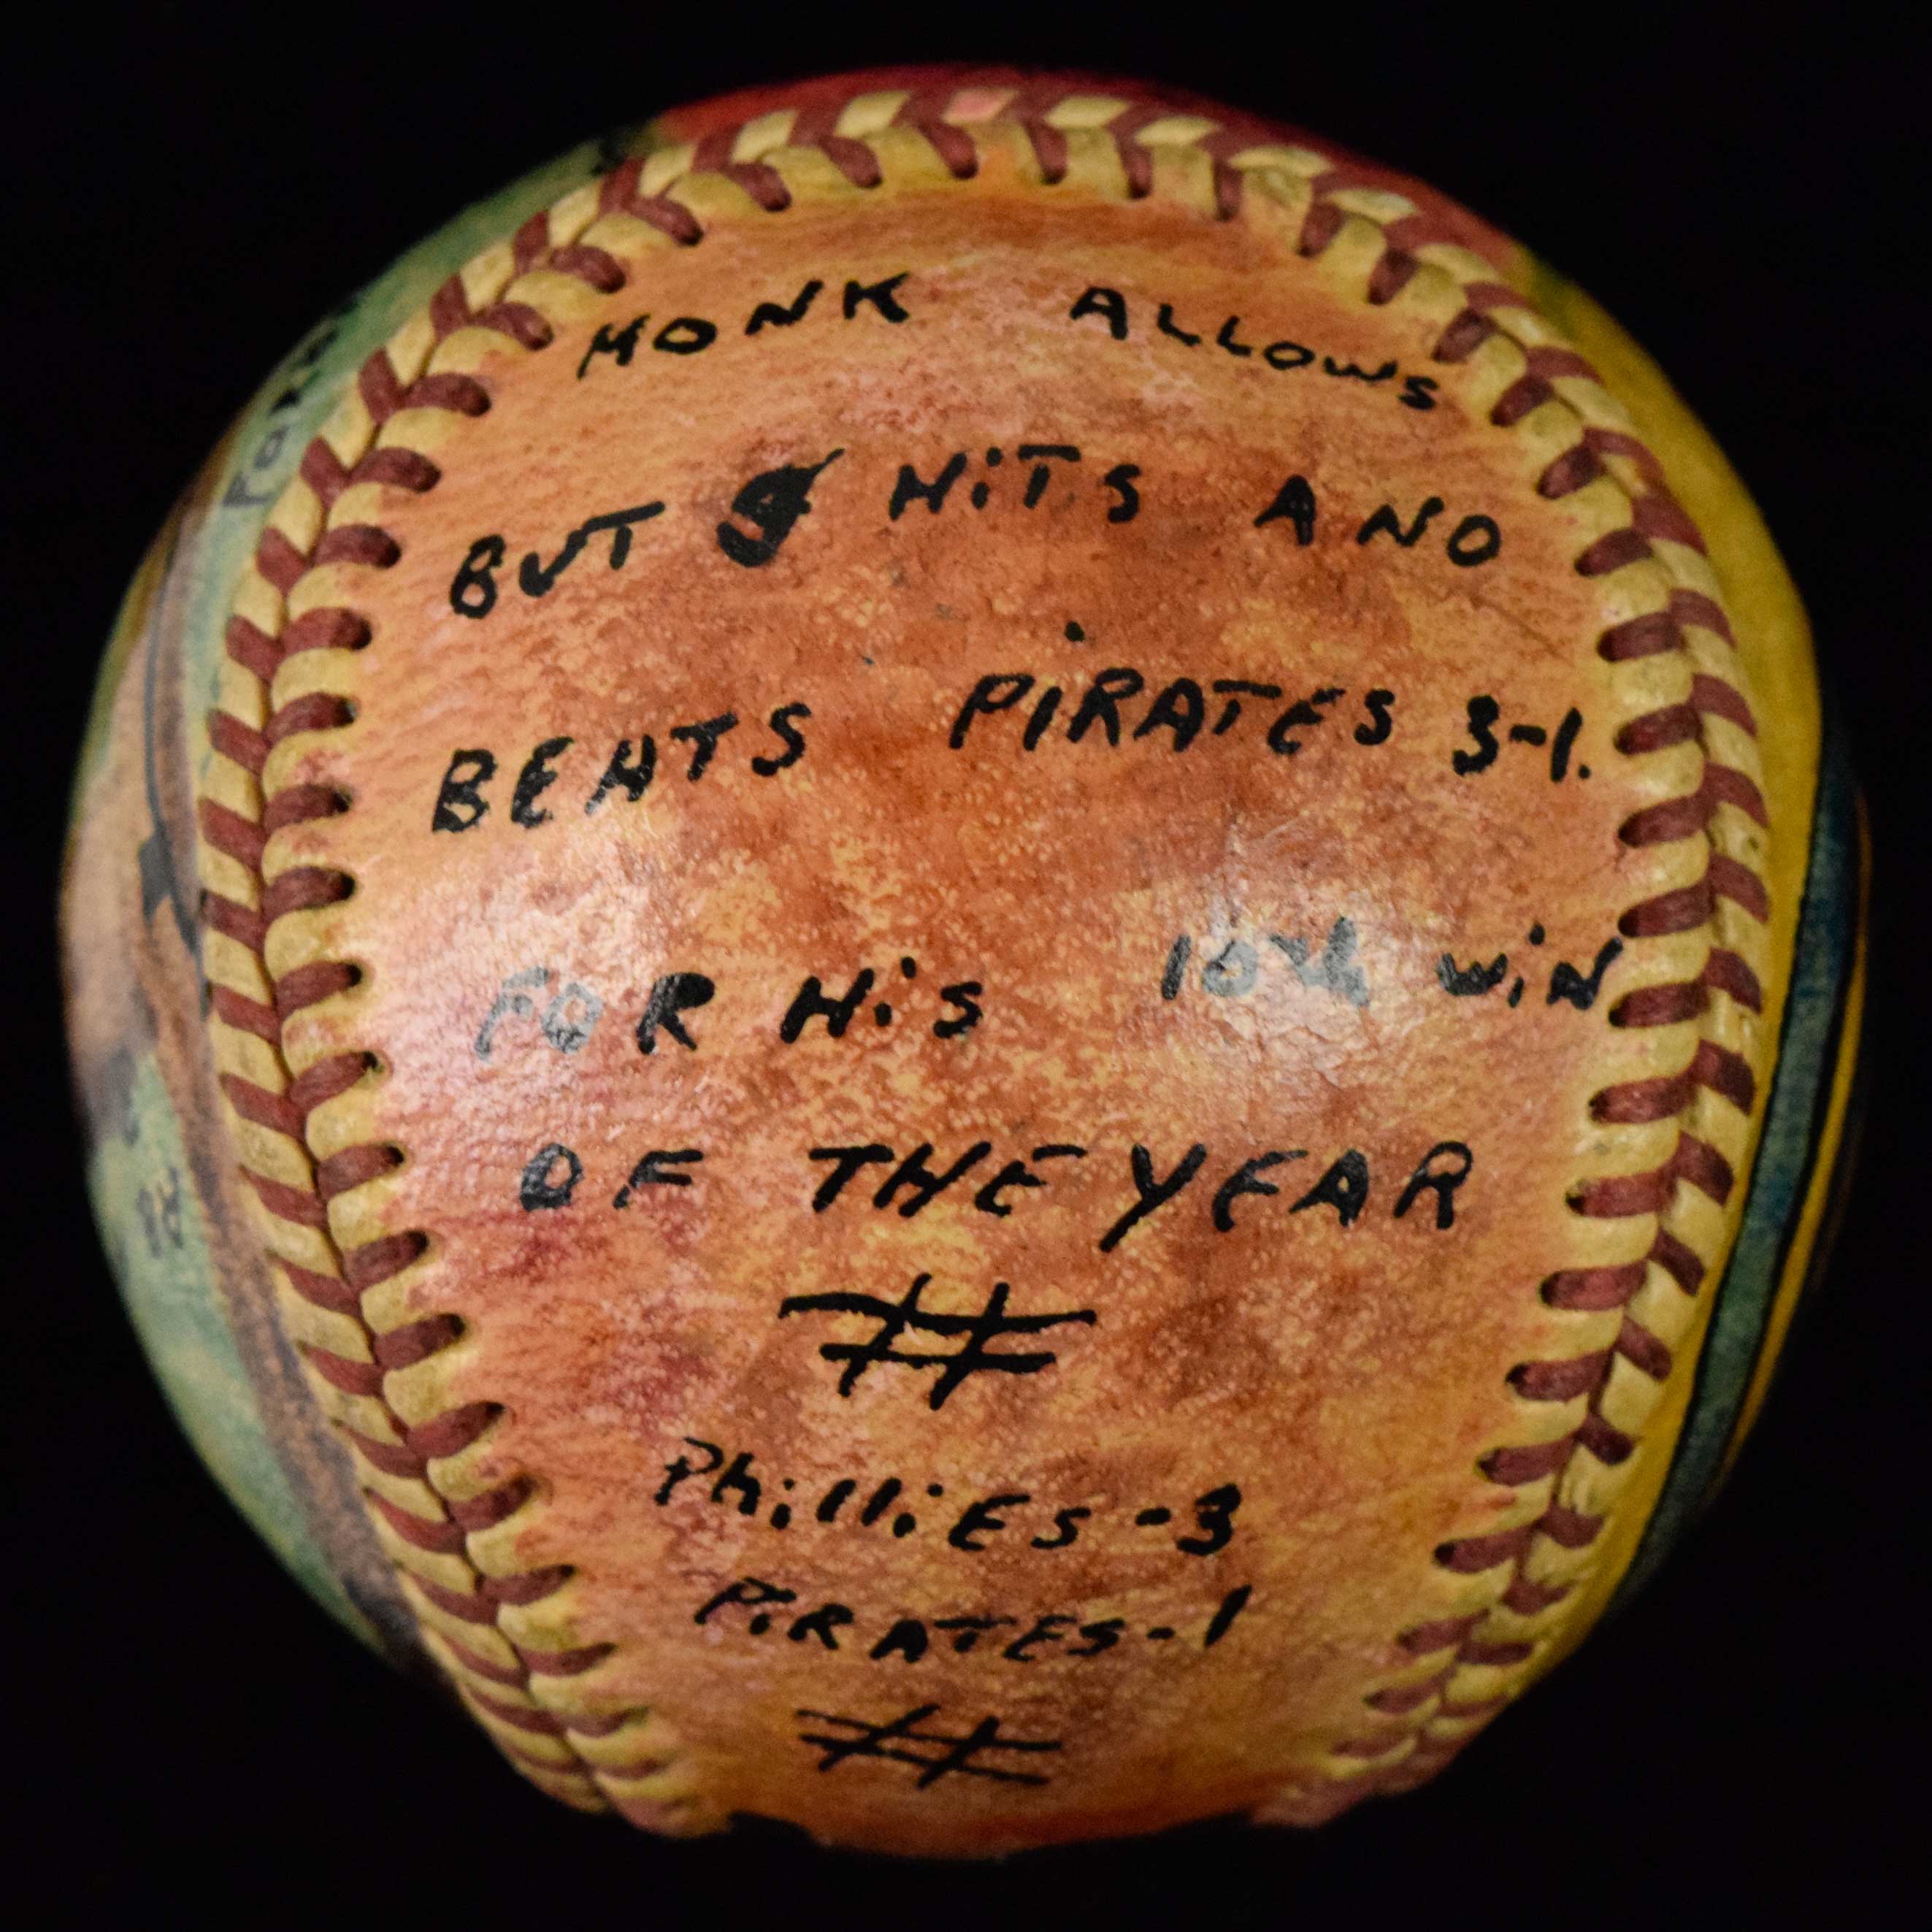 MONK ALLOWS
BUT HiTS AND
BEATS PIRATES 3-1.
FOR HiS 10th WiN
OF THE YEAR
#
PhilliEs-3
PiRATES-1
#